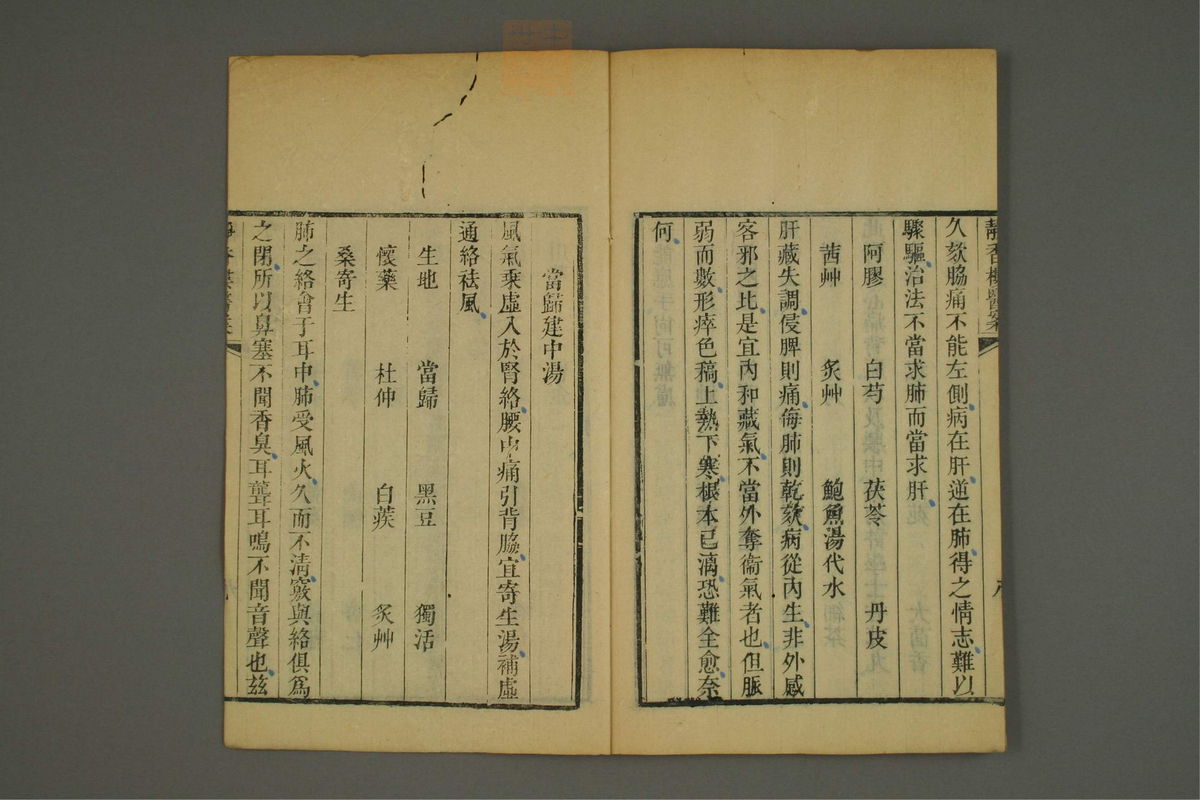 靜香樓醫案
久欬脇痛不能左側病在肝逆在肺得之情志難以
驟驅治法不當求肺而當求肝
阿膠 白芍 茯苓 丹皮
茜艸 炙艸 鮑魚湯代水
肝藏失調侵脾則痛侮肺則乾欬病從內生非外感
客邪之比是宜內和藏氣不當外奪衞氣者也但脈
弱而數形瘁色槁上熱下寒根本已漓恐難全愈奈
何
當歸建中湯
風氣乗虛入於腎絡腰中痛引背脇宜寄生湯補虛
通絡祛風
生地 當歸 黑豆 獨活
懷藥 杜仲 白蒺 炙艸
桑寄生
肺之絡會于耳中肺受風火久而不淸竅與絡俱爲
之閉所以鼻塞不聞香臭耳聾耳鳴不聞音聲也茲